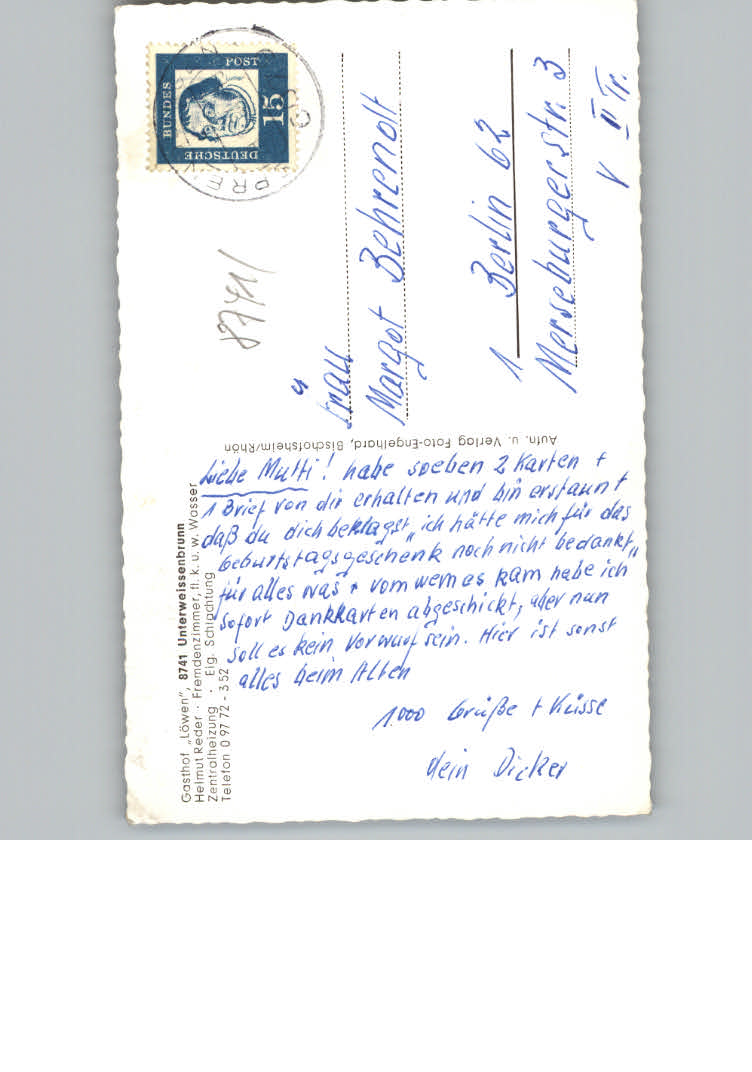 DEUTSCHE
BUNDES
POST
15
8741/
Frau
Margot Behrendt
1 Berlin 62
Merseburgerstr. 3
V II Tr.
Aufn. u. Verlag Foto-Engelhard, Bischofsheim/Rhön
Gasthof „Löwen", 8741 Unterweissenbrunn
Helmut Reder · Fremdenzimmer, fl. k. u. w. Wasser
Zentralheizung · Eig. Schlachtung
Telefon 0 97 72 - 3 52
Liebe Mutti! habe soeben 2 Karten +
1 Brief von dir erhalten und bin erstaunt
daß du dich beklagst „ich hätte mich für das
Geburtstagsgeschenk noch nicht bedankt"
für alles was + vom wem es kam habe ich
sofort Dankkarten abgeschickt, aber nun
soll es kein Vorwurf sein. Hier ist sonst
alles beim Alten
1000 Grüße + Küsse
dein Dicker